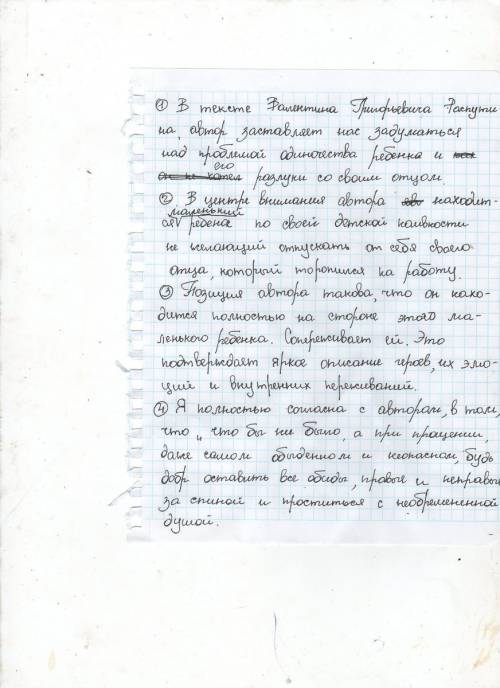 ① В тексте Валентина Григорьевича Распути-
на, автор заставляет нас задуматься
над проблемой одиночества ребёнка и
его разлуки со своим отцом.
② В центре внимания автора находит-
ся маленький ребёнок по своей детской наивности
не желающий отпускать от себя своего
отца, который торопился на работу.
③ Позиция автора такова, что он нахо-
дится полностью на стороне этого ма-
ленького ребенка. Сопереживает ей. Это
подтверждает яркое описание героев, их эмо-
ций и внутренних переживаний.
④ Я полностью согласна с автором, в том,
что „ что бы ни было, а при прощении,
даже самом обыденном и неопасном, будь
добр оставить все обиды, правые и неправые
за спиной и проститься с необременённой
душой.